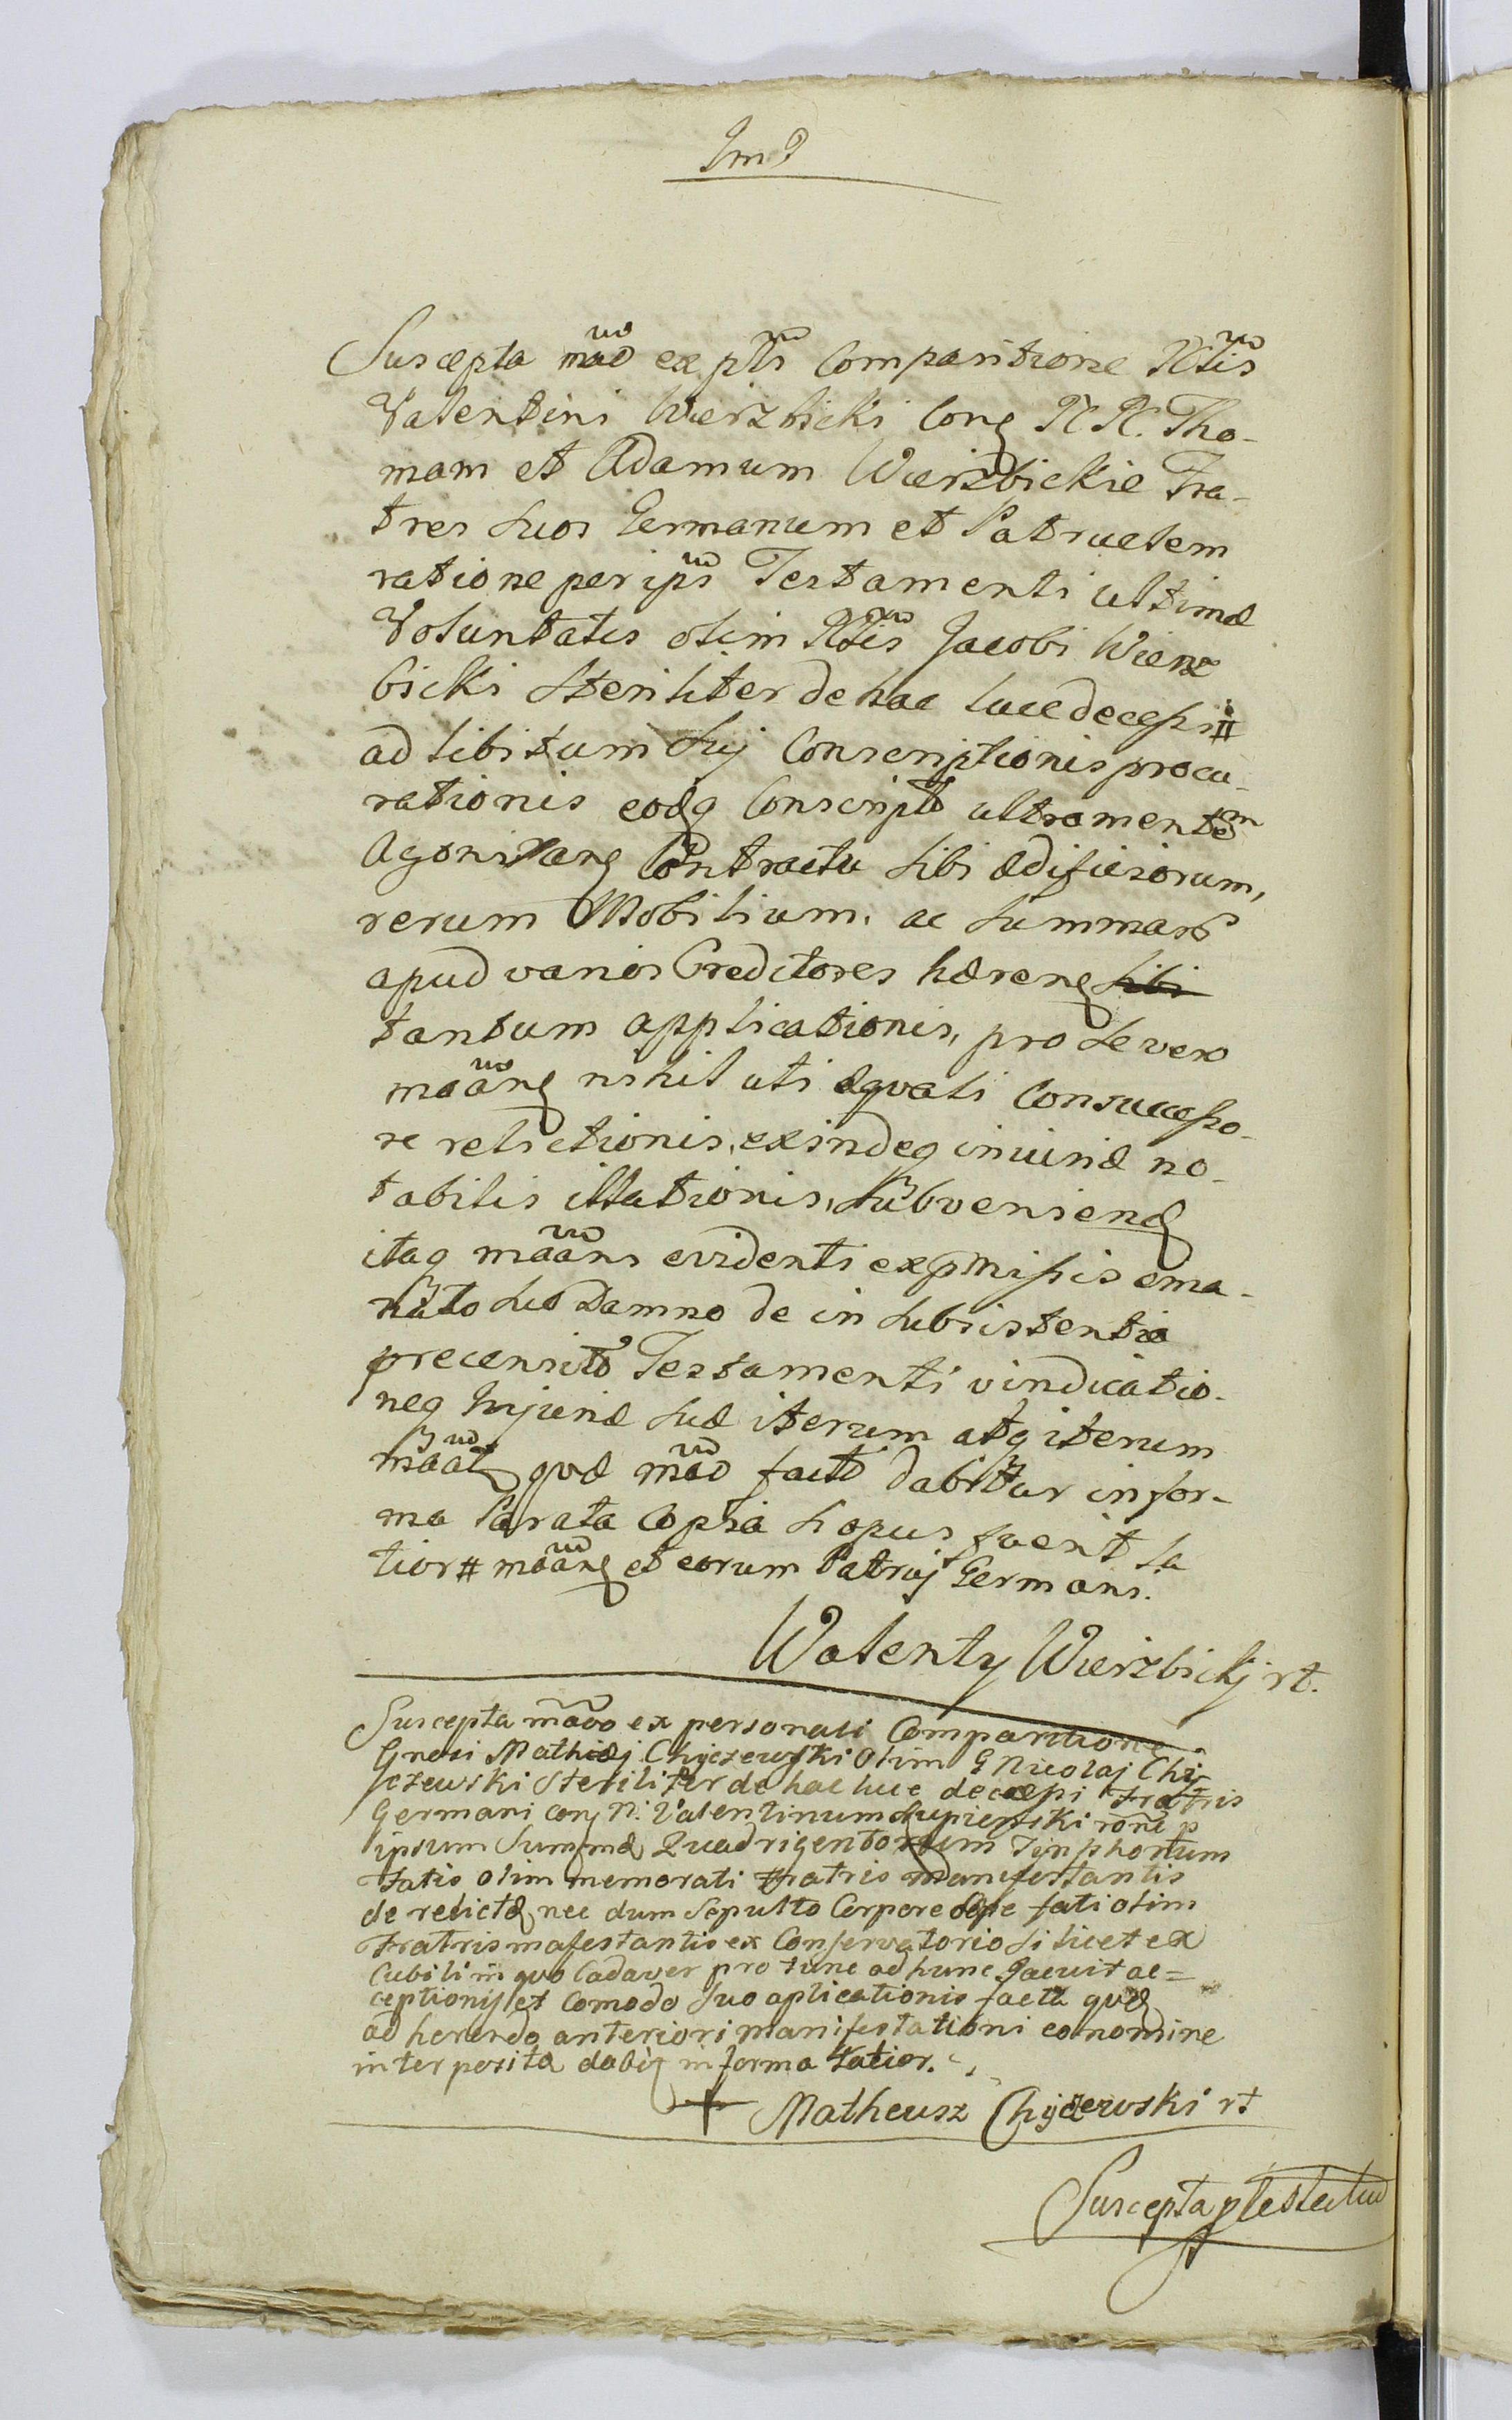 Suscepta mao ex pli Comparitione Nlis
Valentini Wierzbicki Cong N N. Tho-
mam et Adamum Wierzbickie Fra-
tres suos Germanum et Patruelem
ratione per ips Testamenti ultimæ
Voluntatis olim Nlis Jacobi Wierz
bicki steriliter de hac luce decessi #
ad libitum sui Conscriptionis procu-
rationis eodq Conscripto
Contractu sibi ædificiorum,
rerum Mobilium, ac summar
apud varios Creditores hæreng sibi
tantum applicationis, pro se vero
maang nihil uti æquali Consuccesso-
re relictionis, exindeq iniuriæ no-
tabilis illationis, Subveniend
itaq maans evidenti ex pmissis ema-
nato suo Damno de in subsistentia
precensito Testamenti vindicatio-
neq Injuriæ suæ iterum atq iterum
maat quæ mao facto dabitur in for-
ma Parata Copia si opus fuerit sa
tior # maang et eorum Patruj Germani.
Walenty Wierzbickj rt.
Suscepta maoo ex personali Comparitione
Gnosi Mathiæj Chyczewski Olim G Nicolaj Chy-
czewski Steriliter de hac luce decessi Fratris
Germani conj N. Valentinum rone p
ipsum Summæ Quadrigentorum Tynphonum
Fatis olim memorati Fratris Manifestantis
de relictæ nec dum Sepulto Corpore sæpe fati olim
Fratris mafestantis ex Conservatorio silicet ex
Cubili in quo Cadaver pro tunc ad hunc Jacuit ac=
ceptionis et Comodo suo aplicationis facta quæ
ad herendo anteriori manifestationi eo nomine
inter posita dabit in forma satior.
+ Matheusz Chyczewski rt
Suscepta